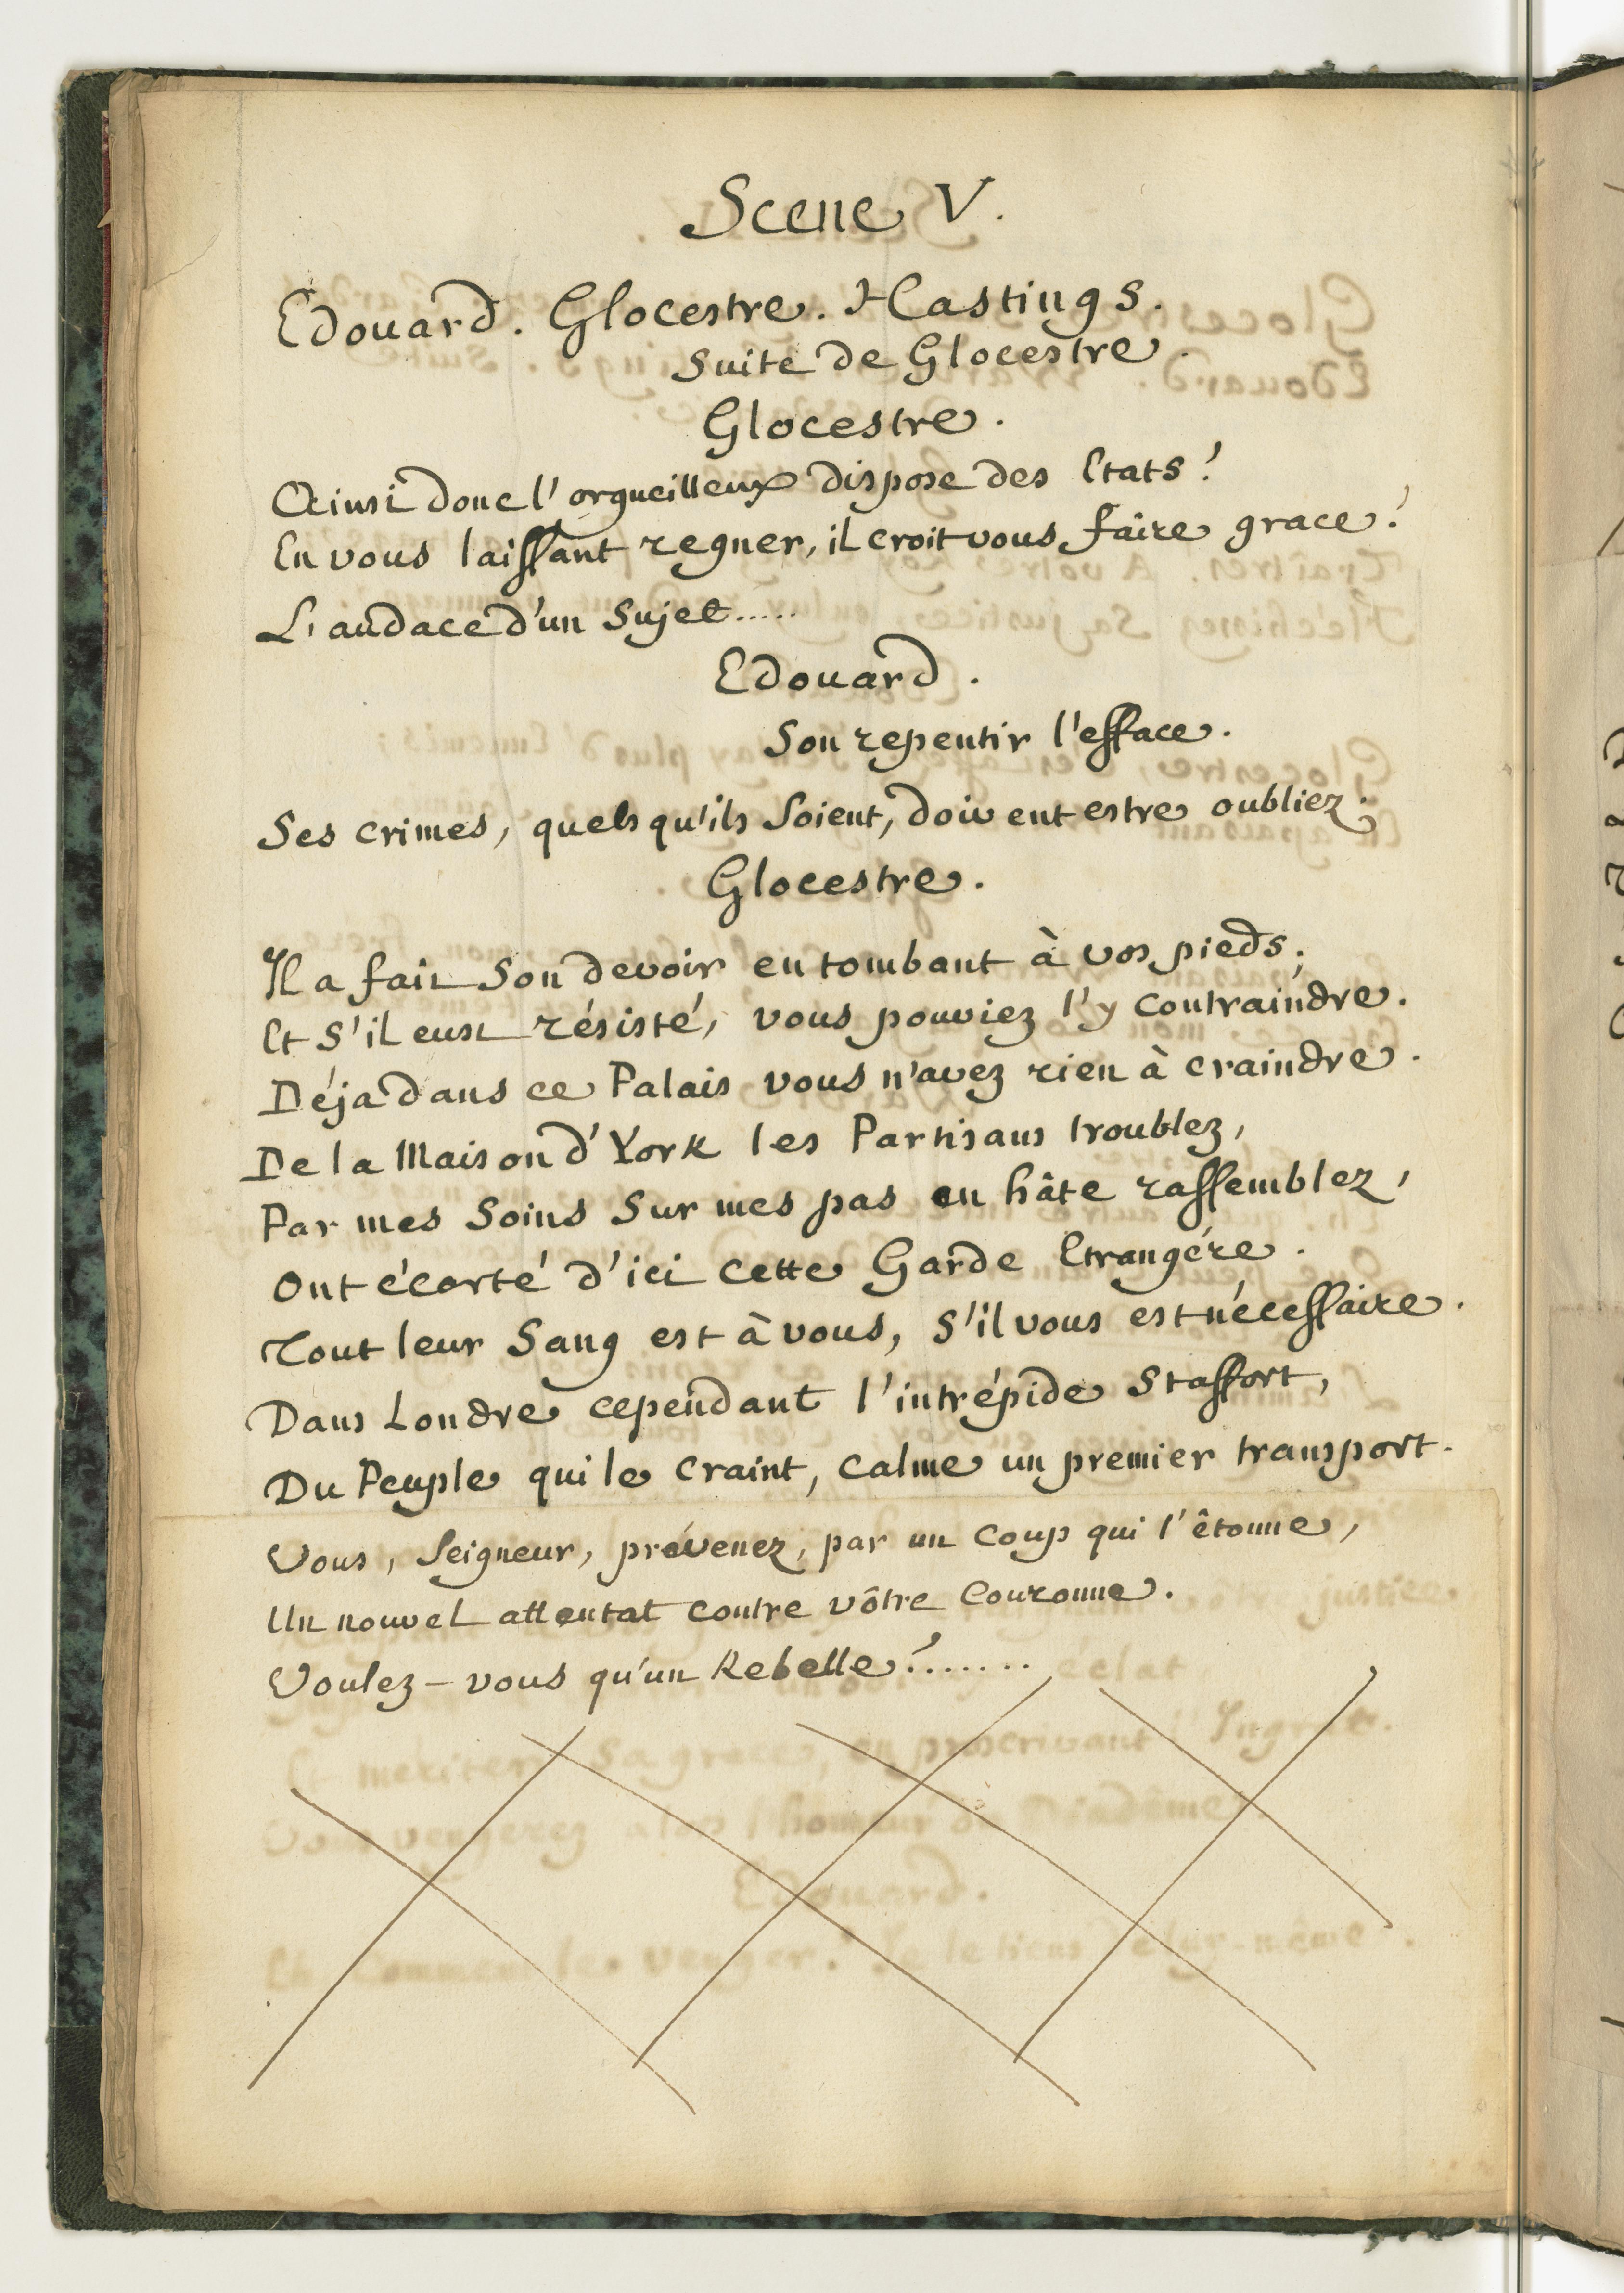 Scene V.
Edouard. Glocestre. Hastings.
Suite de Glocestre.
Glocestre.
Ainsi donc l'orgueilleux dispose des Etats!
En vous laissant regner, il croit vous faire grace!
L'audace d'un Sujet.....
Edouard.
Son repentir l'efface.
Ses crimes, quels qu'ils soient, doivent estre oubliez.
Glocestre.
Il a fait Son devoir en tombant à vos pieds;
Et S'il eust résisté, vous pouviez l'y contraindre.
Déja dans ce Palais vous n'avez rien à craindre.
De la Maison d'York les Partisans troublez,
Par mes Soins Sur mes pas en hâte rassemblez,
Ont écarté d'ici cette Garde Etrangére.
Tout leur Sang est à vous, S'il vous est nécessaire.
Dans Londre cependant l'intrépide Staffort,
Du Peuple qui le craint, calme un premier transport.
Vous, Seigneur, prévenez, par un coup qui l'êtonne,
Un nouvel attentat contre vôtre Couronne.
Voulez-vous qu'un Rebelle?.......
éclat
Et meriter Sa grace, en proscrivant l'Ingrat.
Vous vengerez alors l'honneur du Diadême
Edouard.
Et comment les venger? Je le tiens de luy-même.